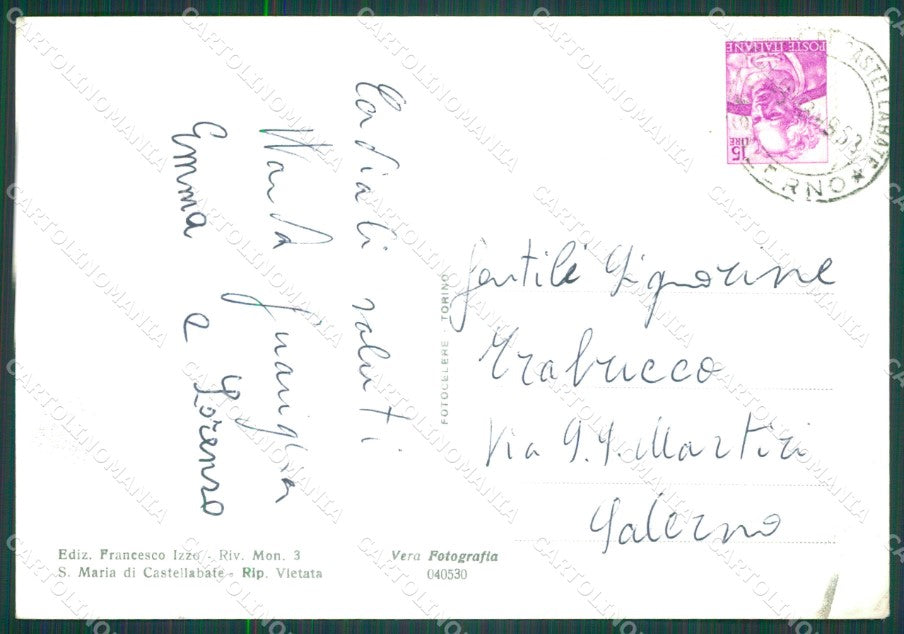 POSTE ITALIANE
15 LIRE
CASTELLABATE
SALERNO
Cordiali saluti
Wanda
Emma e Lorenzo
FOTOCELERE - TORINO
Gentili Signorine
Trabucco
Via SS. Martiri
Salerno
Ediz. Francesco Izzo - Riv. Mon. 3
S. Maria di Castellabate - Rip. Vietata
Vera Fotografia
040530
CARTOLINOMANIA